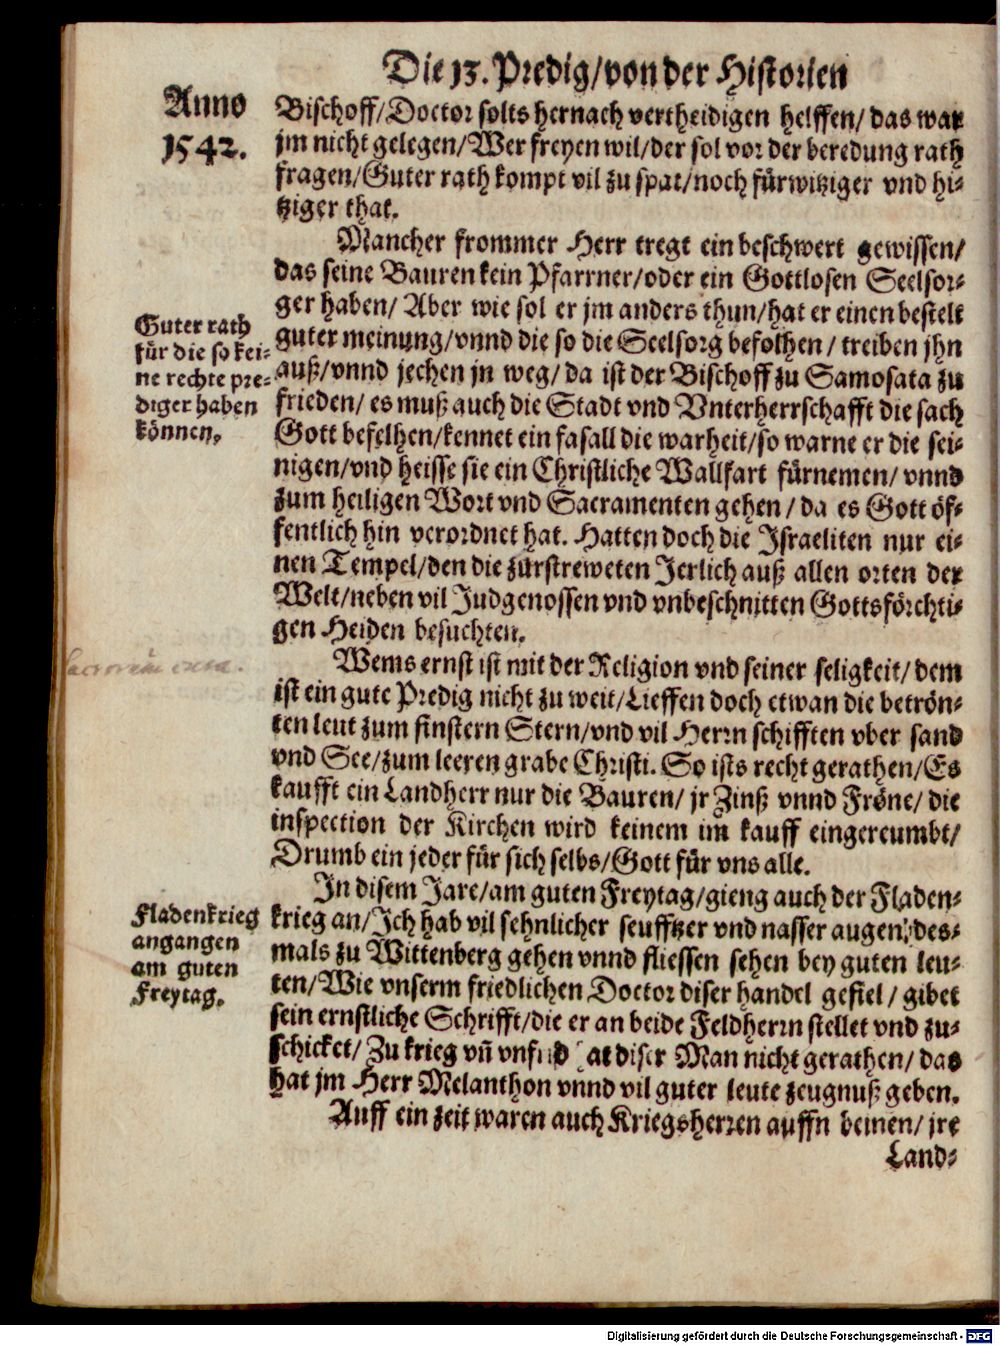 Die 13. Predig/von der Historien
Anno
1542.
Bischoff/Doctor solts hernach vertheidigen helffen/ das war
jm nicht gelegen/Wer freyen wil/der sol vor der beredung rath
fragen/Guter rath kompt vil zu spat/noch fürwitziger vnd hi-
tziger that.
Mancher frommer Herr tregt ein beschwert gewissen/
das seine Bauren kein Pfarrner/oder ein Gottlosen Seelsor-
ger haben/ Aber wie sol er jm anders thun/hat er einen bestelt
Guter rath
für die so kei-
ne rechte pre-
diger haben
können.
guter meinung/vnnd die so die Seelsorg befolhen/ treiben jhn
auß/vnnd jechen jn weg/ da ist der Bischoff zu Samosata zu
frieden/ es muß auch die Stadt vnd Vnterherrschafft die sach
Gott befelhen/kennet ein fasall die warheit/so warne er die sei-
nigen/vnd heisse sie ein Christliche Wallfart fürnemen/ vnnd
zum heiligen Wort vnd Sacramenten gehen/ da es Gott öf-
fentlich hin verordnet hat. Hatten doch die Israeliten nur ei-
nen Tempel/den die zurstreweten Jerlich auß allen orten der
Welt/neben vil Judgenossen vnd vnbeschnitten Gottsförchti-
gen Heiden besuchten.
Wems ernst ist mit der Religion vnd seiner seligkeit/ dem
ist ein gute Predig nicht zu weit/Lieffen doch etwan die betrön-
ten leut zum finstern Stern/vnd vil Herrn schifften vber sand
vnd See/zum leeren grabe Christi. So ists recht gerathen/Es
kaufft ein Landherr nur die Bauren/ jr Zinß vnnd Fröne/ die
inspection der Kirchen wird keinem im kauff eingereumbt/
Drumb ein jeder für sich selbs/Gott für vns alle.
In disem Jare/am guten Freytag/gieng auch der Fladen-
Fladenkrieg
angangen
am guten
Freytag.
krieg an/Ich hab vil sehnlicher seufftzer vnd nasser augen/des-
mals zu Wittenberg gehen vnnd fliessen sehen bey guten leu-
ten/Wie vnserm friedlichen Doctor diser handel gefiel/ gibet
sein ernstliche Schrifft/die er an beide Feldherrn stellet vnd zu-
schicket/ Zu krieg vñ at diser Man nicht gerathen/ das
hat jm Herr Melanthon vnnd vil guter leute zeugnuß geben.
Auff ein zeit waren auch Kriegsherren auffn beinen/ jre
Land-
Digitalisierung gefördert durch die Deutsche Forschungsgemeinschaft - DFG